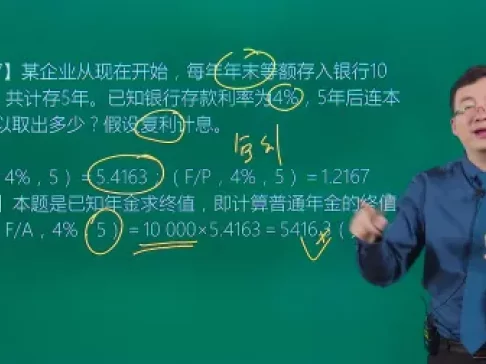 7】某企业从现在开始，每年年末等额存入银行10
共计存5年。已知银行存款利率为4%，5年后连本
以取出多少？假设复利计息。
复利
4%，5）=5.4163；（F/P，4%，5）=1.2167
】本题是已知年金求终值，即计算普通年金的终值
F/A，4%，5）=10 000×5.4163=5416